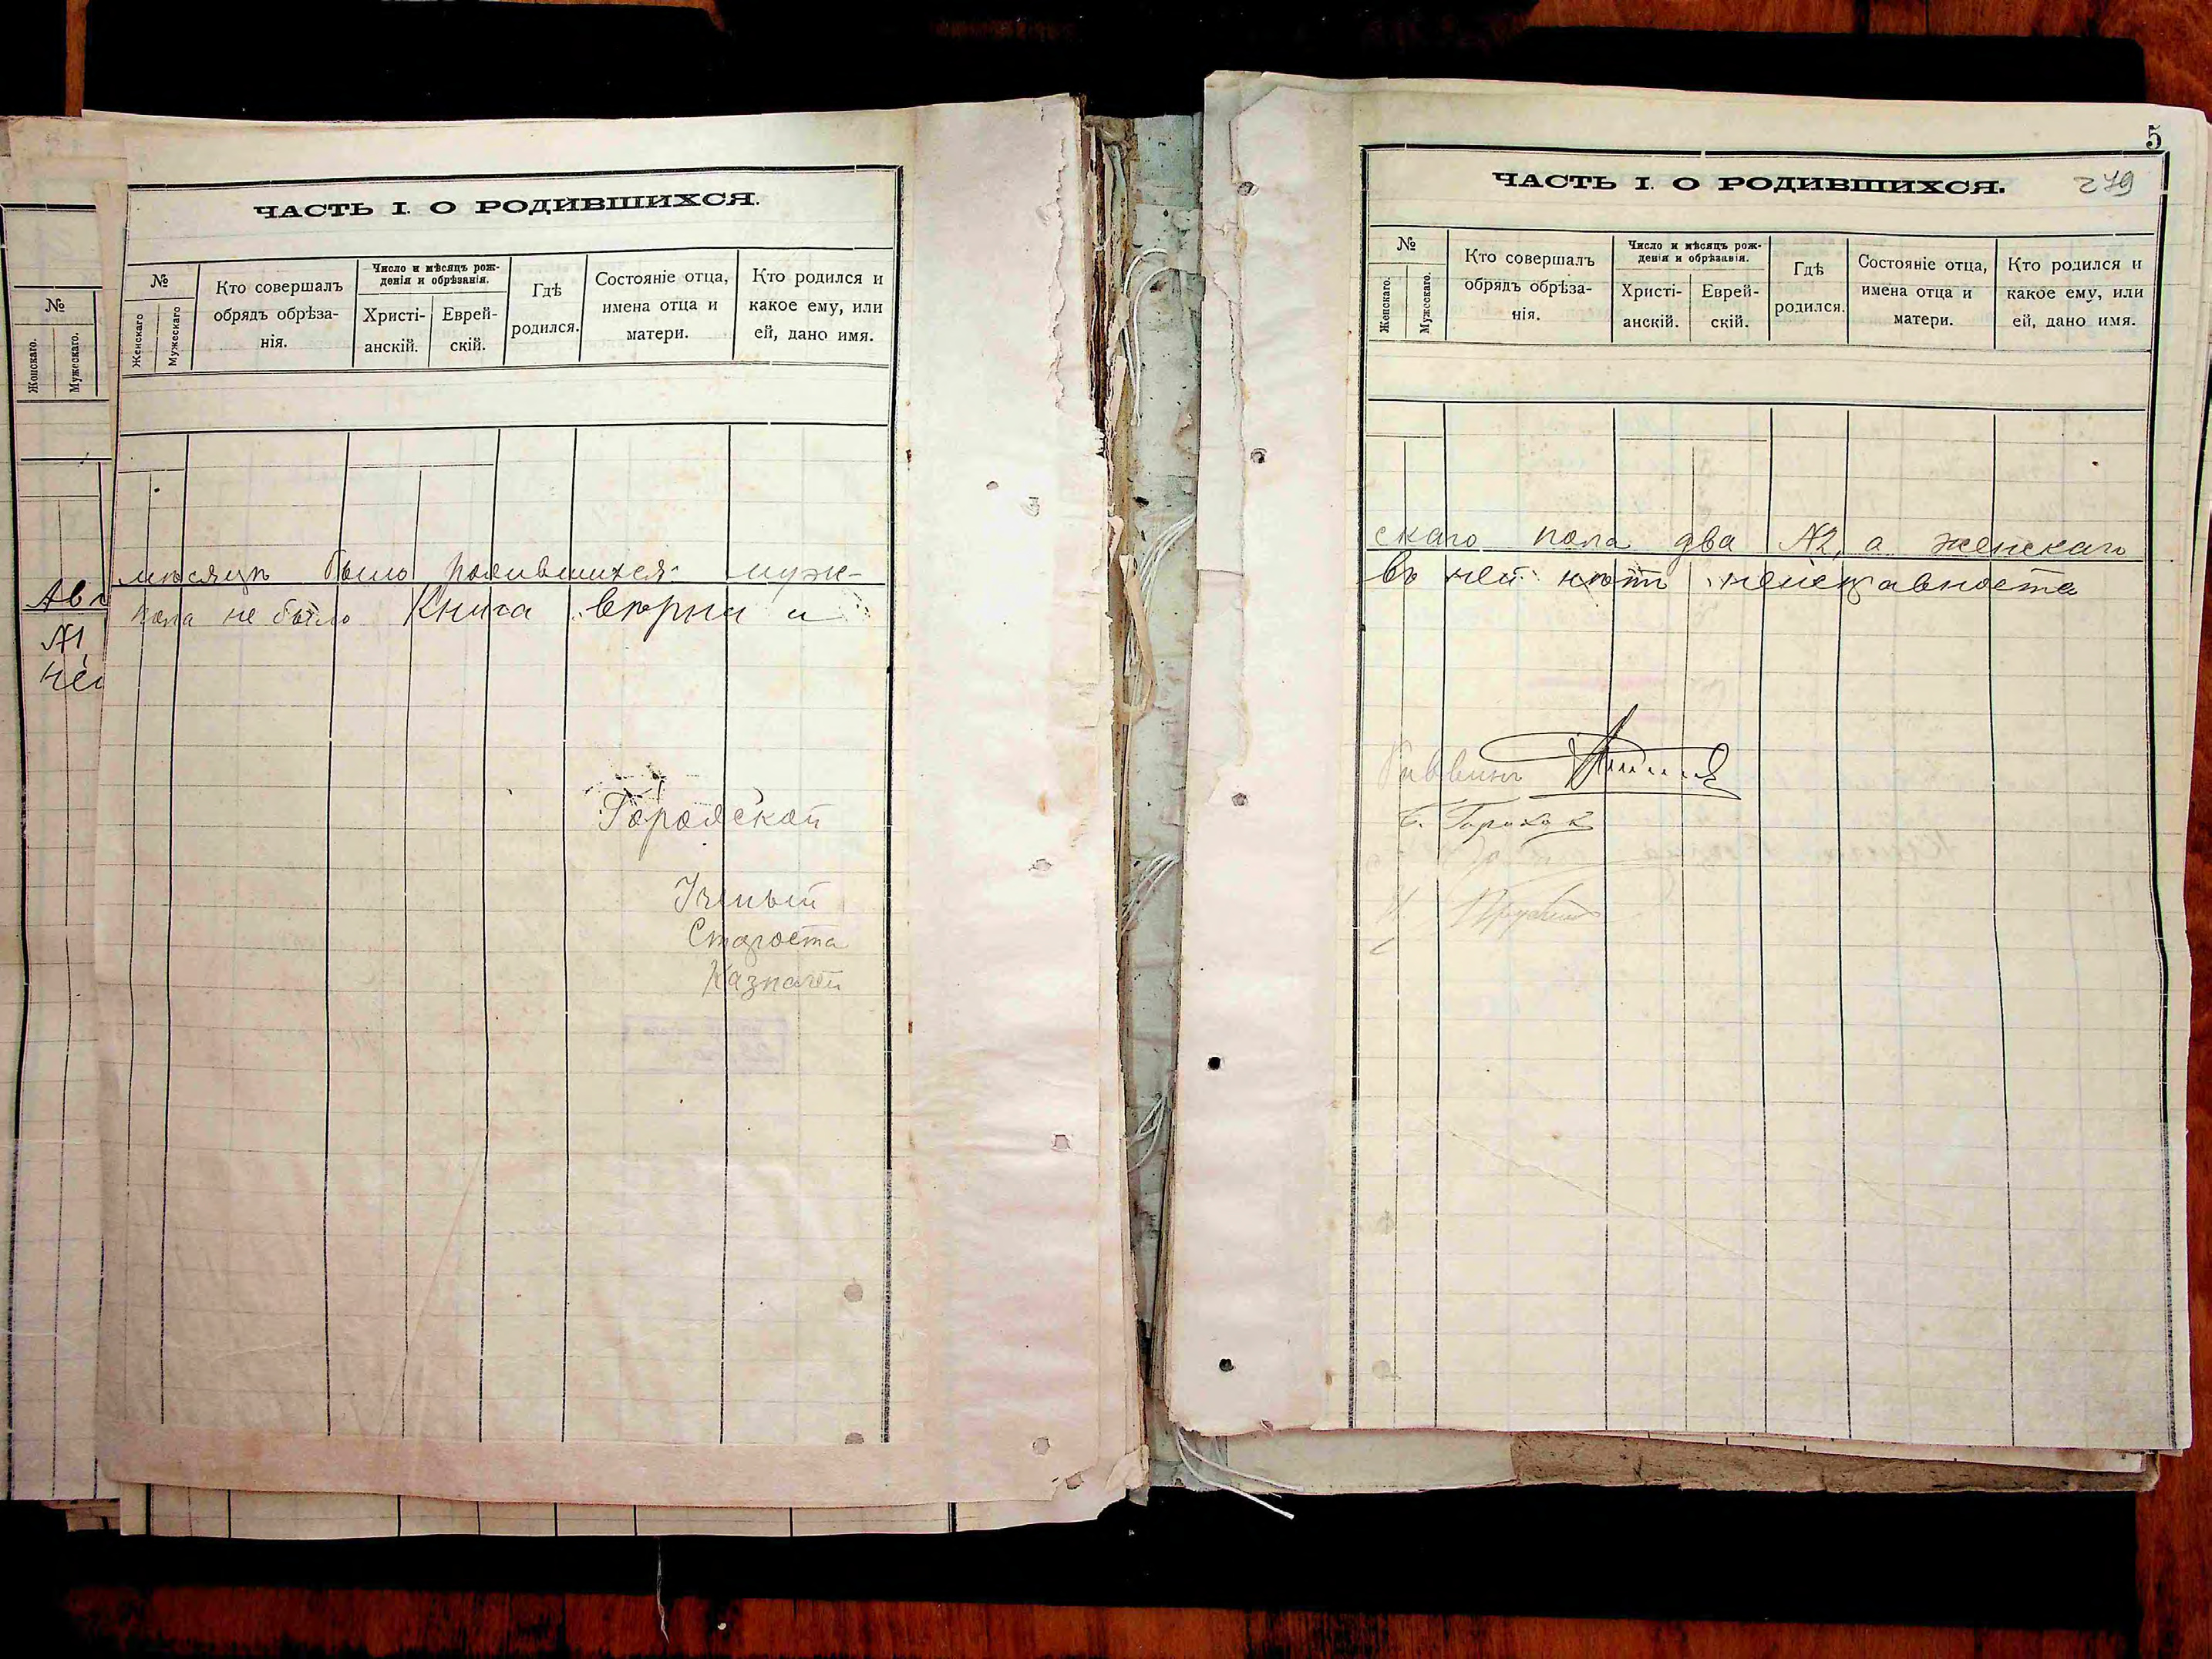 №
Женскаго.
Мужескаго.
Ав
№1,
ней
ЧАСТЬ I. О РОДИВШИХСЯ.
№
Женскаго
Мужескаго
Кто совершалъ
обрядъ обрѣза-
нія.
Число и мѣсяцъ рож-
денія и обрѣзанія.
Христі-
анскій.
Еврей-
скій.
Гдѣ
родился.
Состояніе отца,
имена отца и
матери.
Кто родился и
какое ему, или
ей, дано имя.
мѣсяцъ было родившихся муж-
пола не было Книга вѣрна и
Городской
Ученый
Староста
Казначей
5
ЧАСТЬ I. О РОДИВШИХСЯ.
279
№
Женскаго.
Мужескаго.
Кто совершалъ
обрядъ обрѣза-
нія.
Число и мѣсяцъ рож-
денія и обрѣзанія.
Христі-
анскій.
Еврей-
скій.
Гдѣ
родился.
Состояніе отца,
имена отца и
матери.
Кто родился и
какое ему, или
ей, дано имя.
скаго пола два №2, а женскаго
въ ней нѣтъ неисправности
Раввинъ